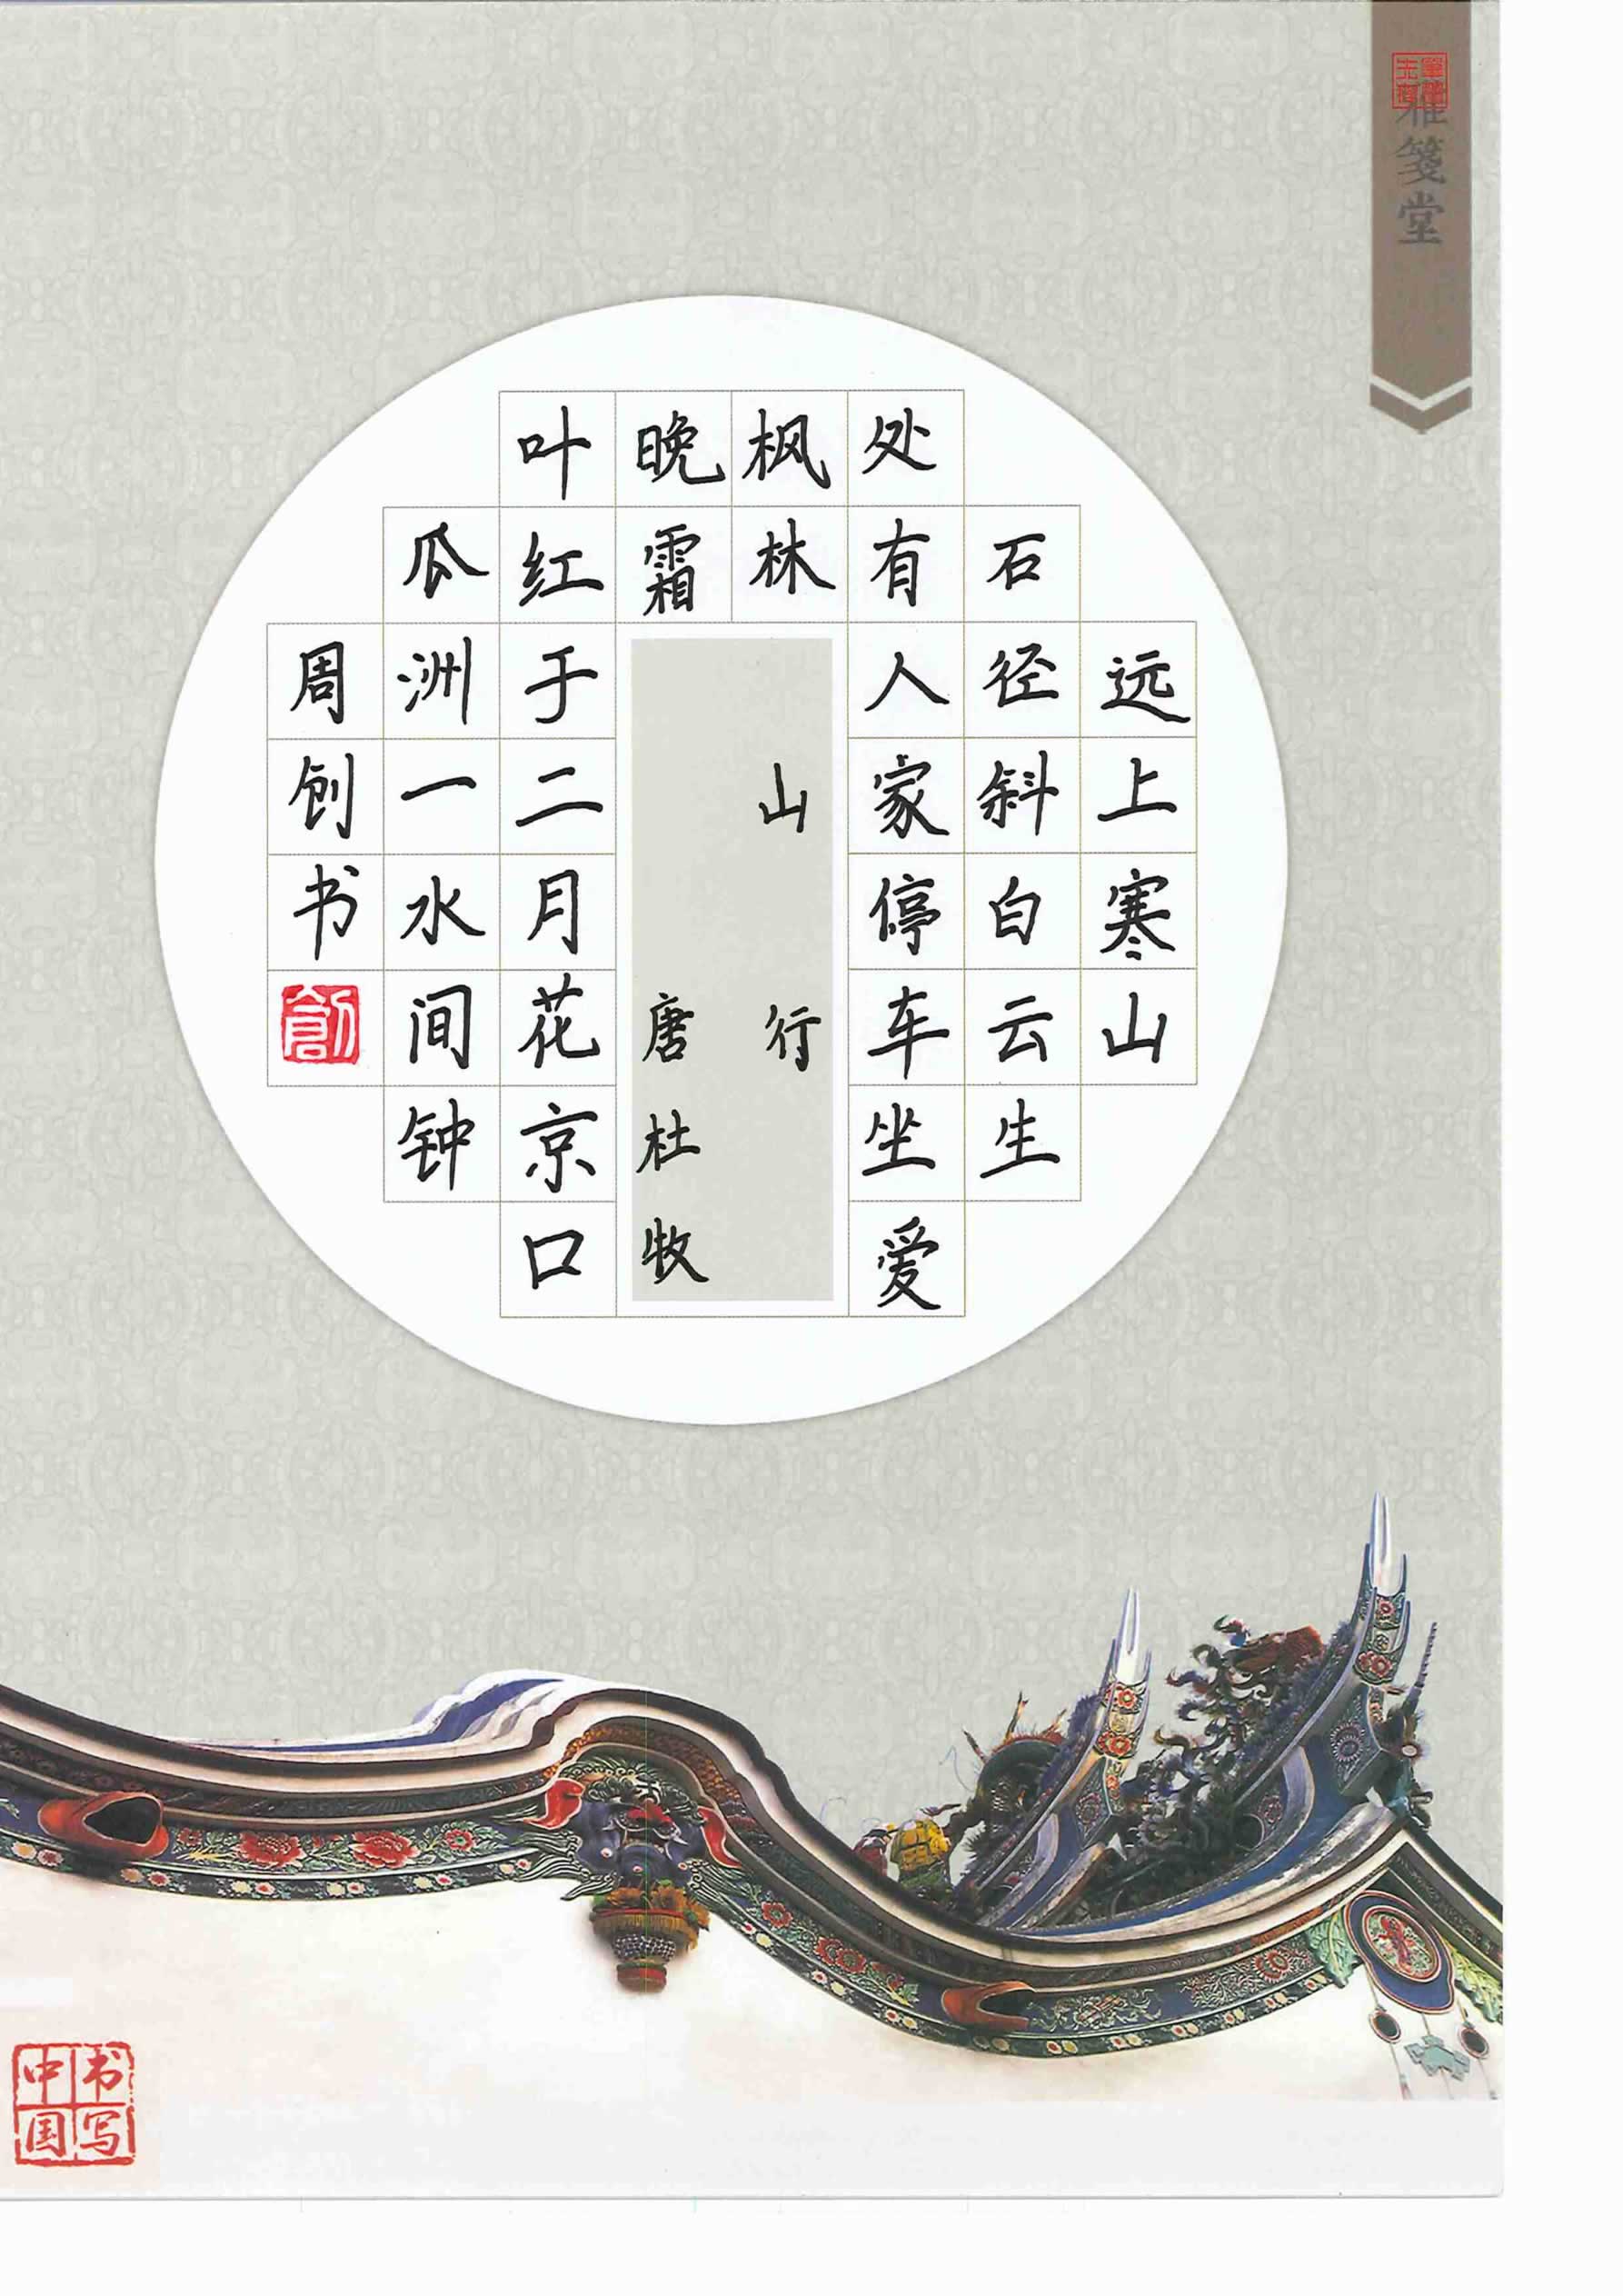 雅笺堂
远上寒山
石径斜白云生
处有人家停车坐爱
枫林
晚霜
叶红于二月花京口
瓜洲一水间钟
周创书
創
山行
唐杜牧
书写
中国